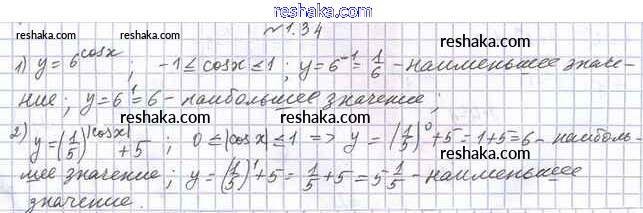 reshaka.ru
№1.34
1) y = 6^cosx ; -1 ≤ cosx ≤ 1 ; y = 6^-1 = 1/6 - наименьшее значе-
ние ; y = 6^1 = 6 - наибольшее значение ;
2) y = (1/5)^|cosx| + 5 ; 0 ≤ |cosx| ≤ 1 => y = (1/5)^0 + 5 = 1 + 5 = 6 - наиболь-
шее значение ; y = (1/5)^1 + 5 = 1/5 + 5 = 5 1/5 - наименьшее
значение.
reshaka.ru